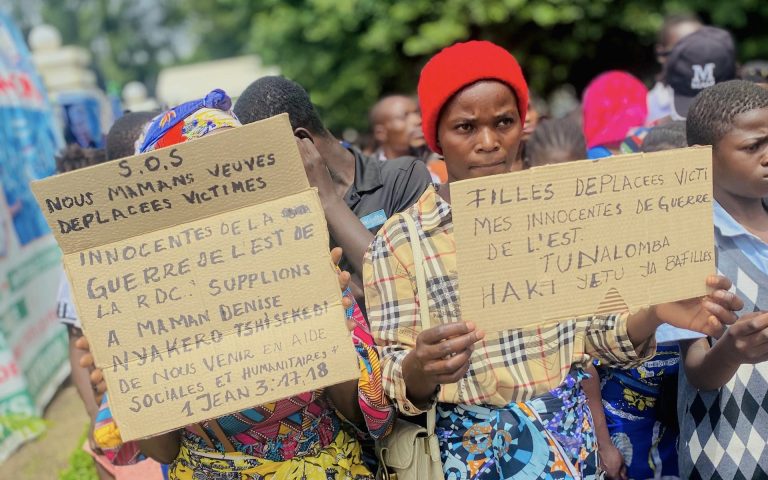 S.O.S
NOUS MAMANS VEUVES
DEPLACEES VICTIMES
INNOCENTES DE LA
GUERRE DE L'EST DE
LA RDC. SUPPLIONS
A MAMAN DENISE
NYAKERO TSHISEKEDI
DE NOUS VENIR EN AIDE
SOCIALES ET HUMANITAIRES
1 JEAN 3:17,18
FILLES DEPLACEES VICTI
MES INNOCENTES DE GUERRE
DE L'EST.
TUNALOMBA
HAKI YETU YA BAFILLES
M